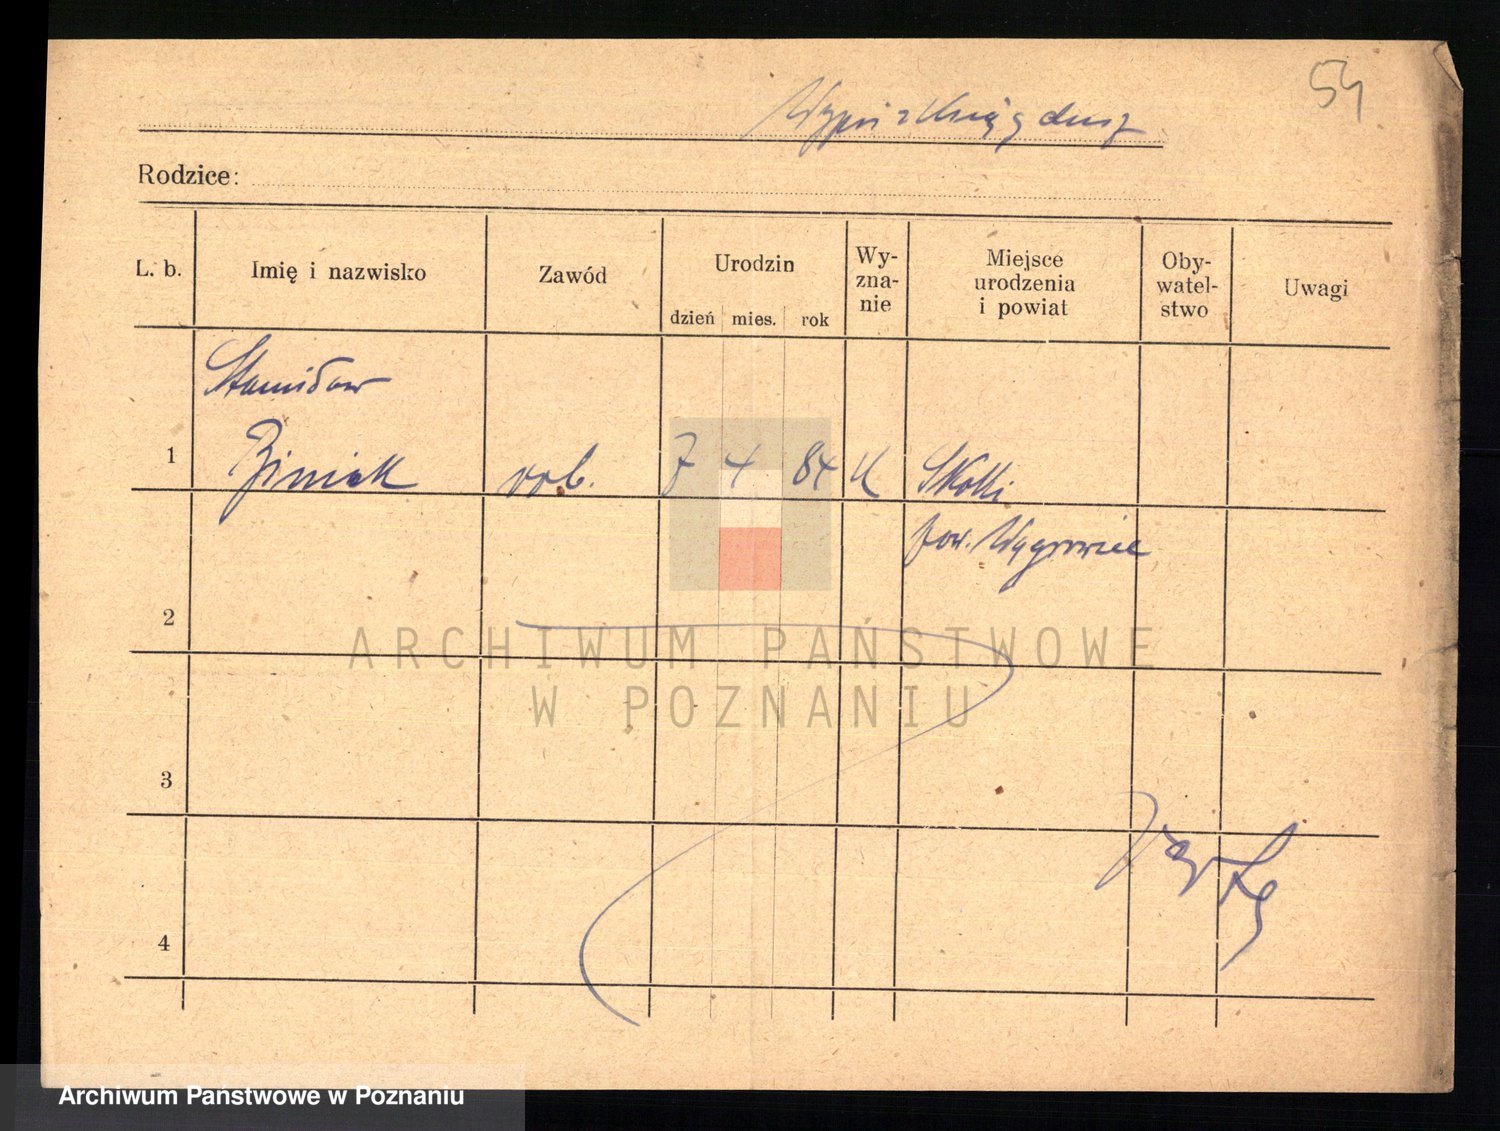 54
Wypis z Księg dusz
Rodzice:
L. b. Imię i nazwisko Zawód Urodzin dzień mies. rok Wy-zna-nie Miejsce urodzenia i powiat Oby-watel-stwo Uwagi
Stanisław
1 Biniak rob. 7 4 84 K Skoki
pow. Wągrowiec
2
ARCHIWUM PAŃSTWOWE
W POZNANIU
3
4
Archiwum Państwowe w Poznaniu